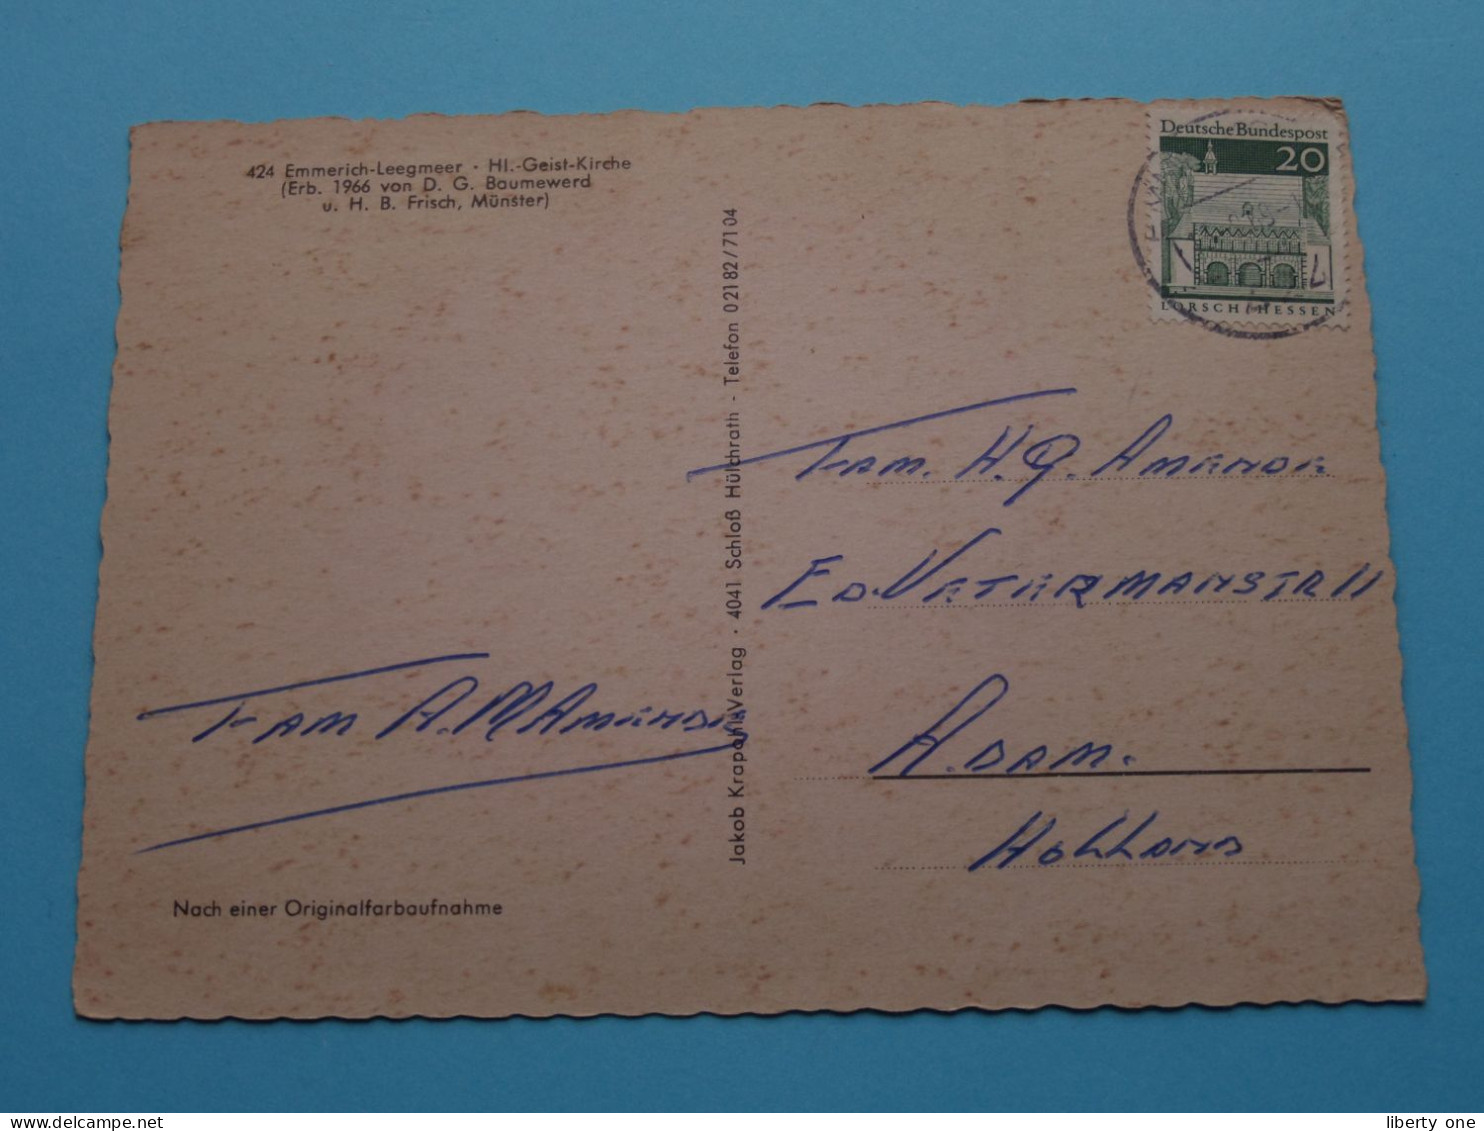 424 Emmerich-Leegmeer · Hl.-Geist-Kirche
(Erb. 1966 von D. G. Baumewerd
u. H. B. Frisch, Münster)
Deutsche Bundespost
20
LORSCH/HESSEN
Jakob Krapohl-Verlag · 4041 Schloß Hülchrath - Telefon 02182/7104
Fam. H. J. Amende
Ed. Vetermanstr 11
A.dam.
Holland
Fam A. M Amende
Nach einer Originalfarbaufnahme
liberty one